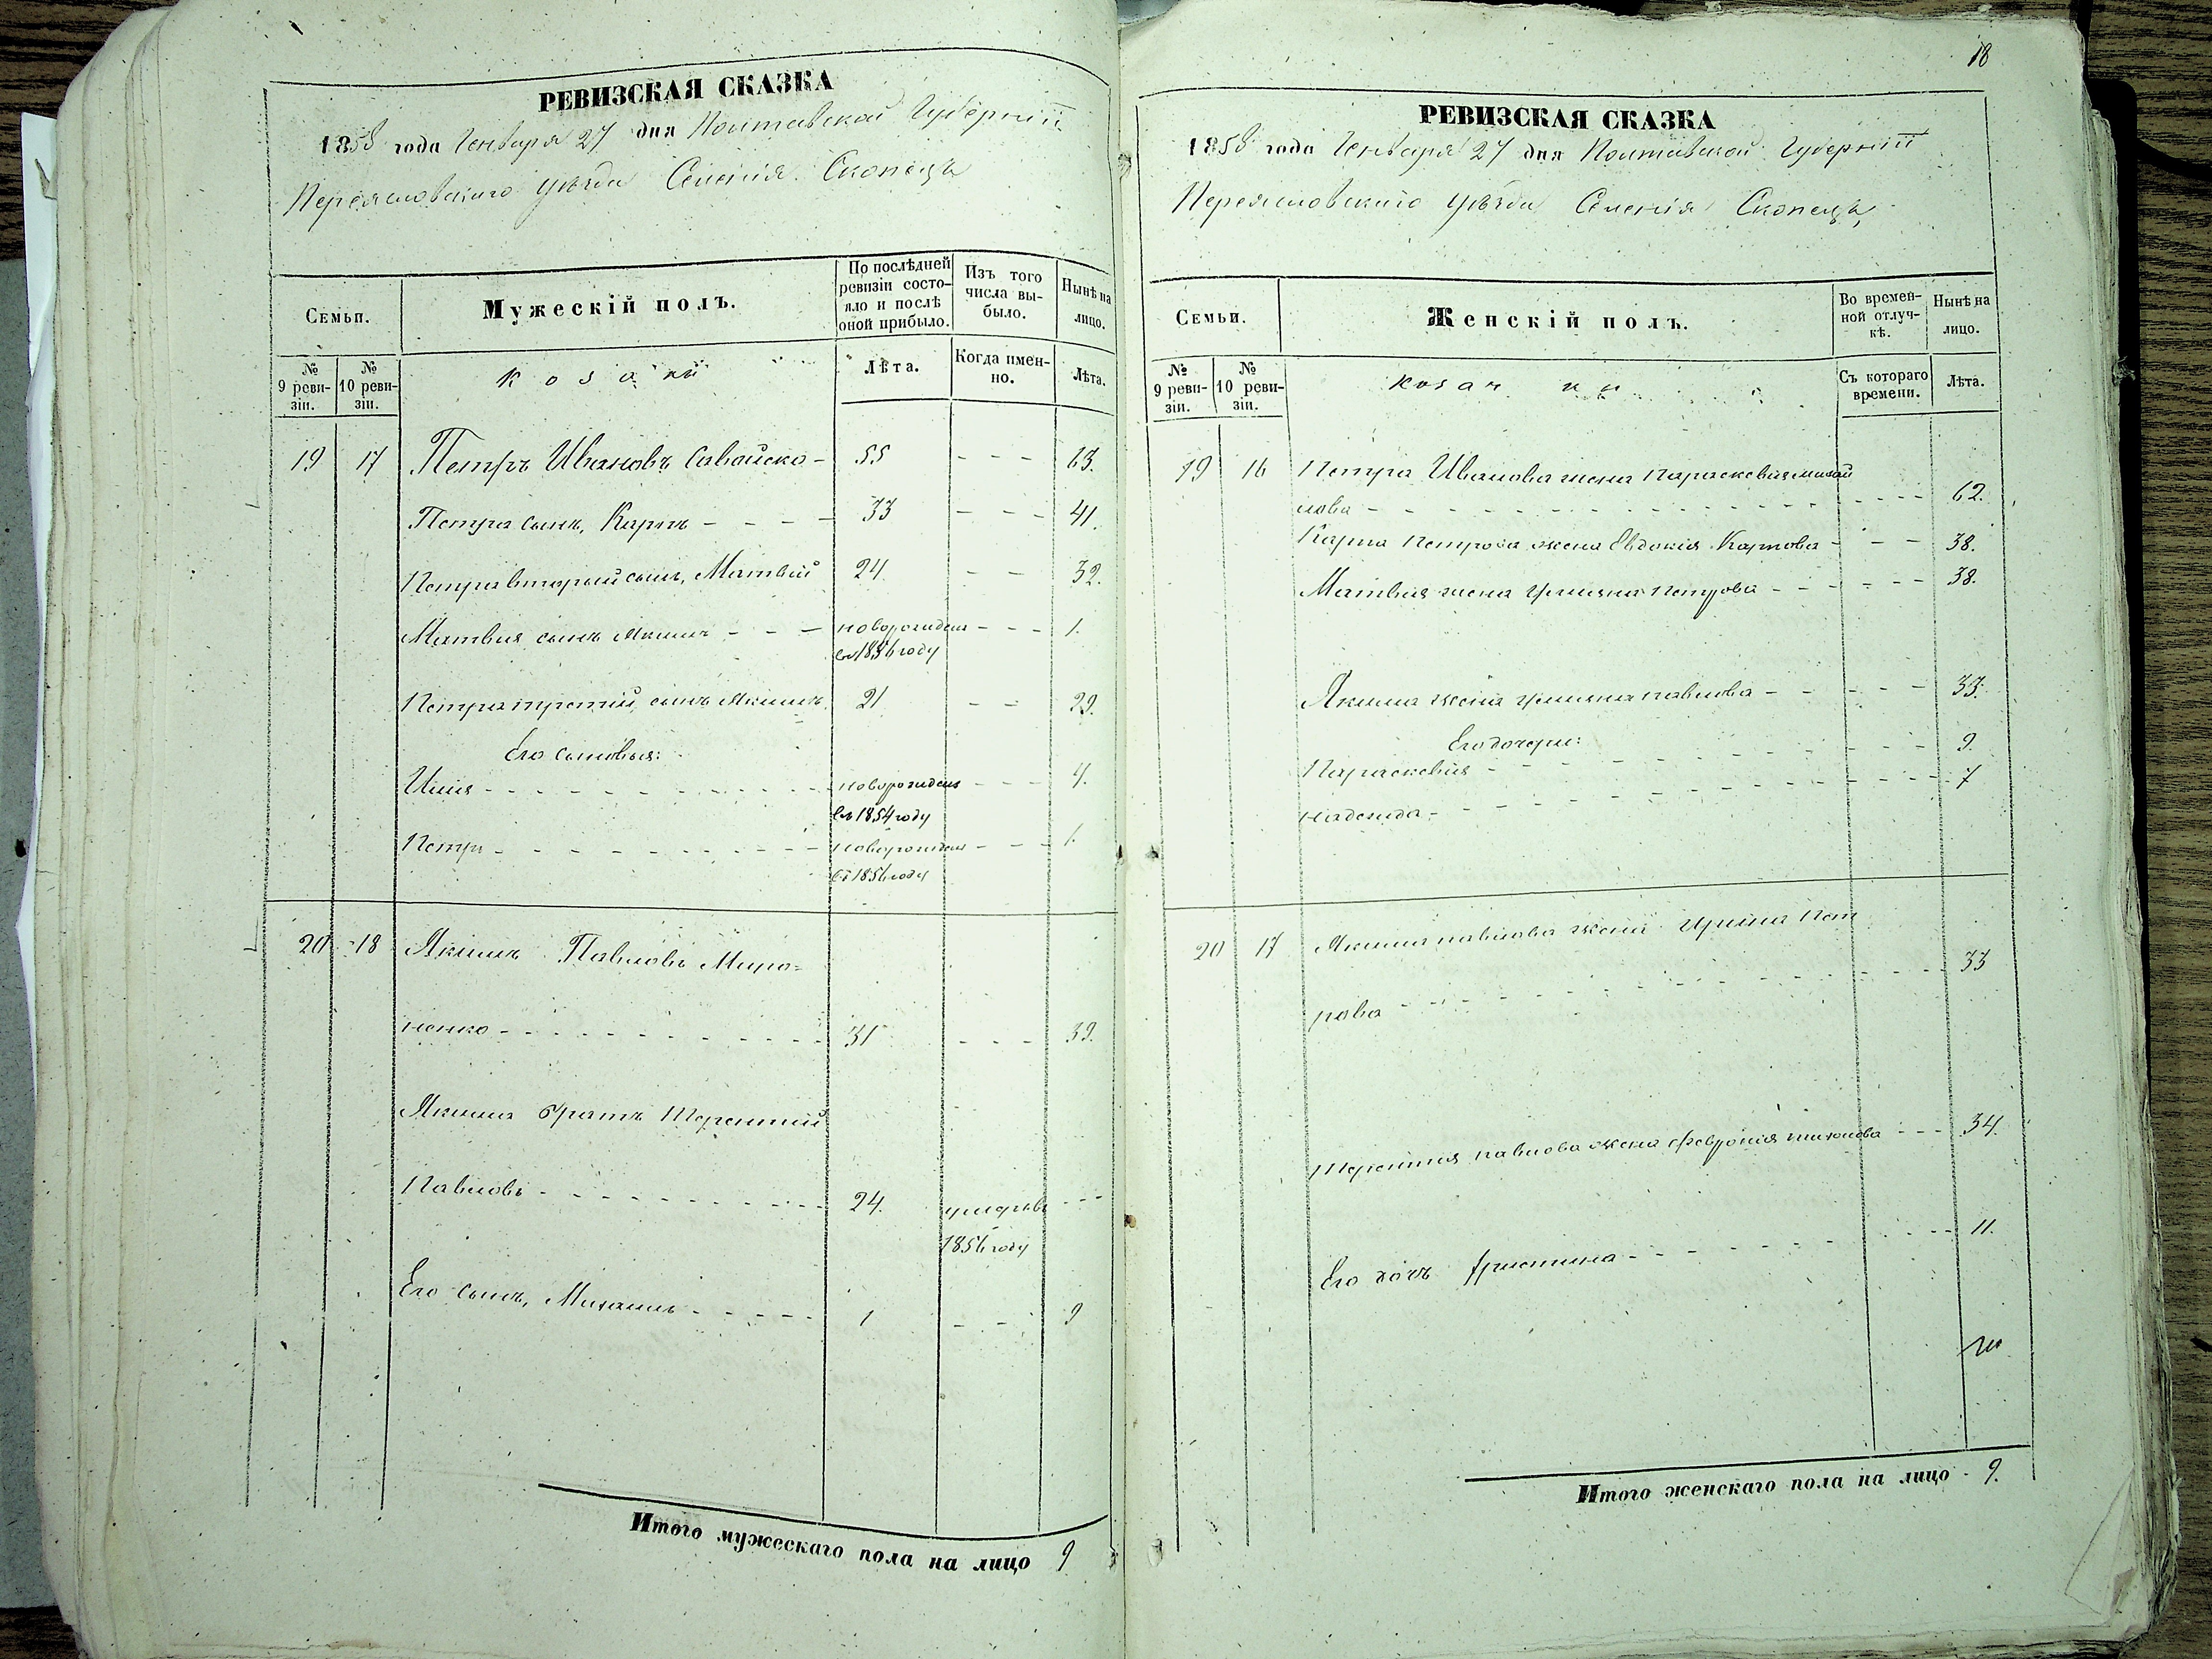 РЕВИЗСКАЯ СКАЗКА
1858 года Генваря 27 дня Полтавской Губерніи
Переяславскаго уѣзда Селенія Скопецъ
Семьи.
Мужескій полъ.
По послѣдней ревизіи состо-
яло и послѣ
оной прибыло.
Изъ того
числа вы-
было.
Нынѣ на
лицо.
№ 9 реви-
зіи.
№ 10 реви-
зіи.
козаки
Лѣта.
Когда имен-
но.
Лѣта.
19 17 Петръ Ивановъ - 55 - - - 63.
Петра сынъ, Карпъ - - - - 33 - - - 41.
Петра вторый сынъ, Матвій 24 - - 32.
Матвія сынъ Якимъ - - - новорожденъ - - - 1.
въ 1856 году
Петра третій сынъ Якимъ 21 - - 29.
Его сыновья:
Илія - - - новорожденъ - - - 4.
въ 1854 году
Петръ - - - новорожденъ - - - 1.
въ 1856 году
20 18 Якимъ Павловъ Миро=
ненко - - - 31 - - - 39.
Якима братъ Терентій
Павловъ - - - 24. умеръ въ - - -
1856 году
Его сынъ, Михаилъ - - - 1 - - - 9
Итого мужескаго пола на лицо 9
18
РЕВИЗСКАЯ СКАЗКА
1858 года Генваря 27 дня Полтавской Губерніи
Переяславскаго уѣзда Селенія Скопецъ,
Семьи.
Женскій полъ.
Во времен-
ной отлуч-
кѣ.
Нынѣ на
лицо.
№ 9 реви-
зіи.
№ 10 реви-
зіи.
козачки
Съ котораго
времени.
Лѣта.
19 16 Петра Иванова жена Параскевія Михай
лова - - - 62.
Карпа Петрова жена Евдокія Карпова - - - 38.
Матвія жена Уліяна Петрова - - - 38.
Якима жена Уліяна Павлова - - - 33.
Его дочери: 9.
Параскевія - - - 7
Надежда -
20 17 Якима Павлова жена Ирина Пет
рова - - - 33
Терентія Павлова жена Февронія Тихонова - - - 34.
Его дочь Христина - - - 11.
Итого женскаго пола на лицо - 9.